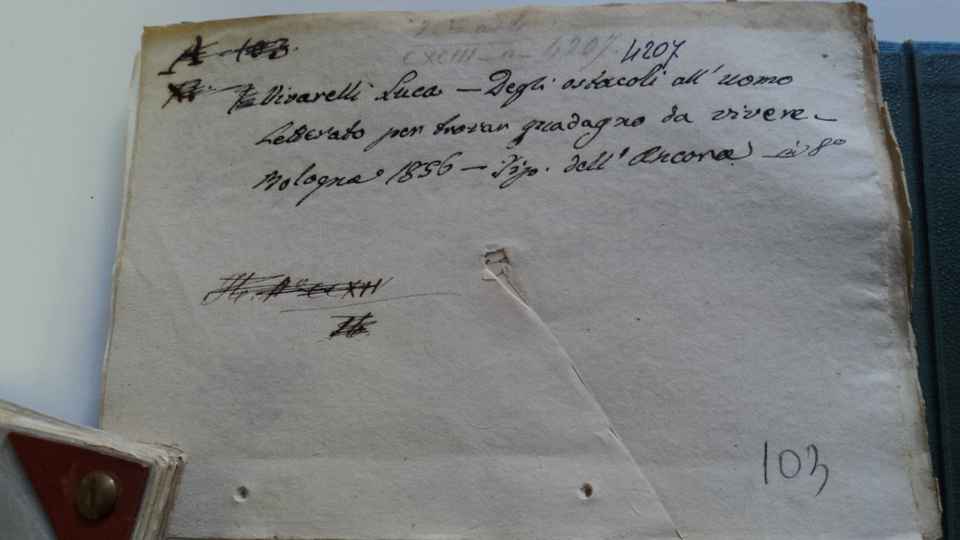 A 103.
CXCIII-a-4207 4207
Vivarelli Luca — Degli ostacoli all' uomo
Letterato per trovar guadagno da vivere —
Bologna 1856 — Tip. dell' Ancora — in 8°
XII
103